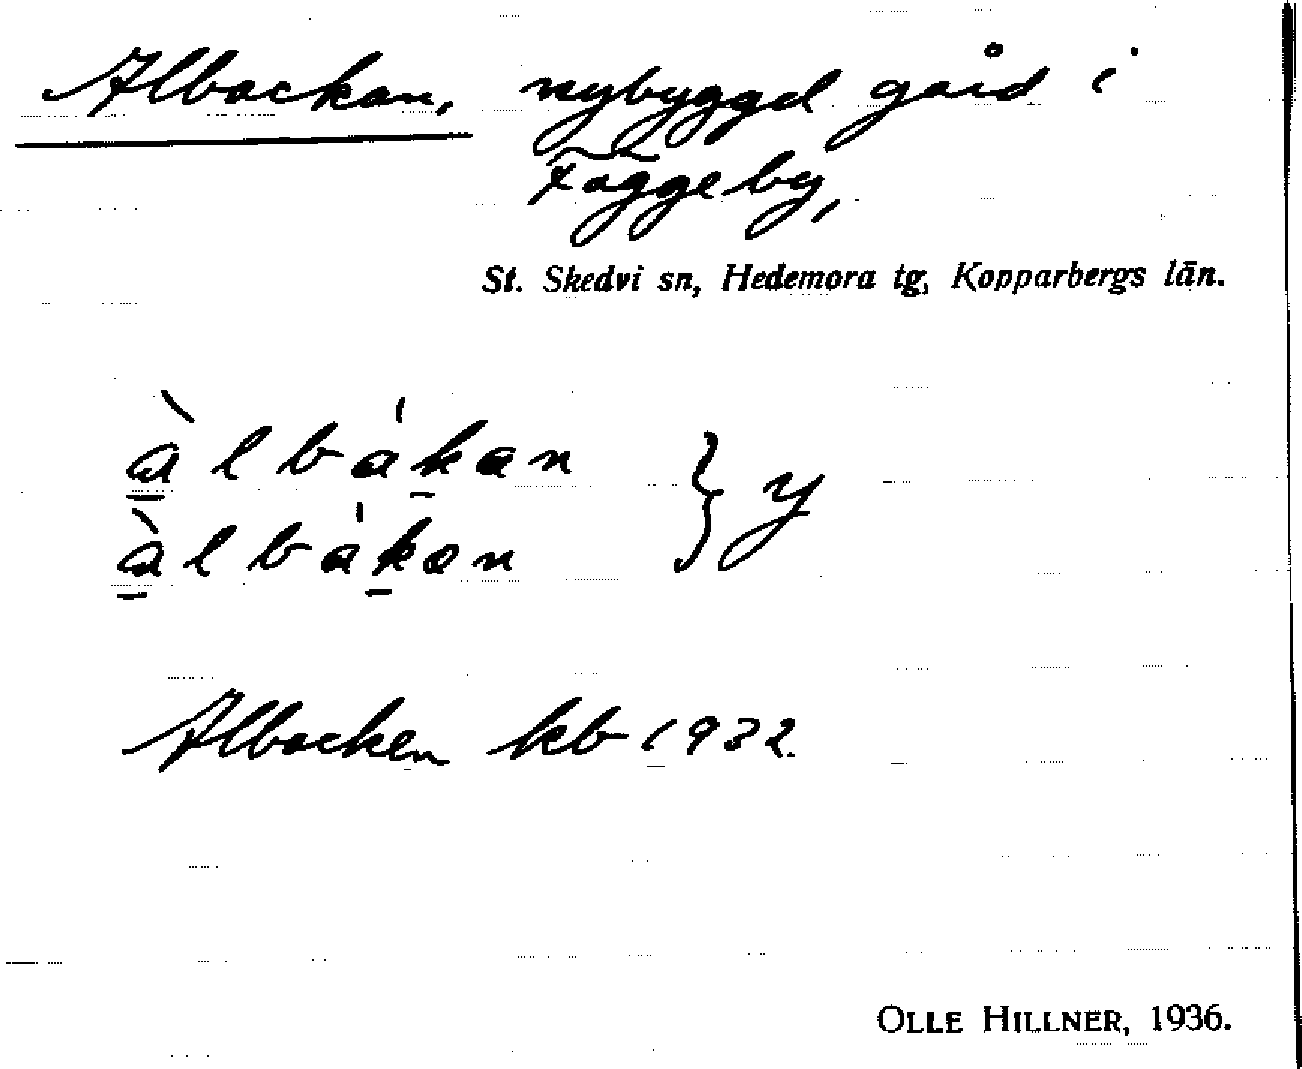 Albackan, nybyggd gård i
Fäggeby,
St. Skedvi sn, Hedemora tg, Kopparbergs län.
àlbákan } y
àlbákan
Albacken kb 1932.
OLLE HILLNER, 1936.